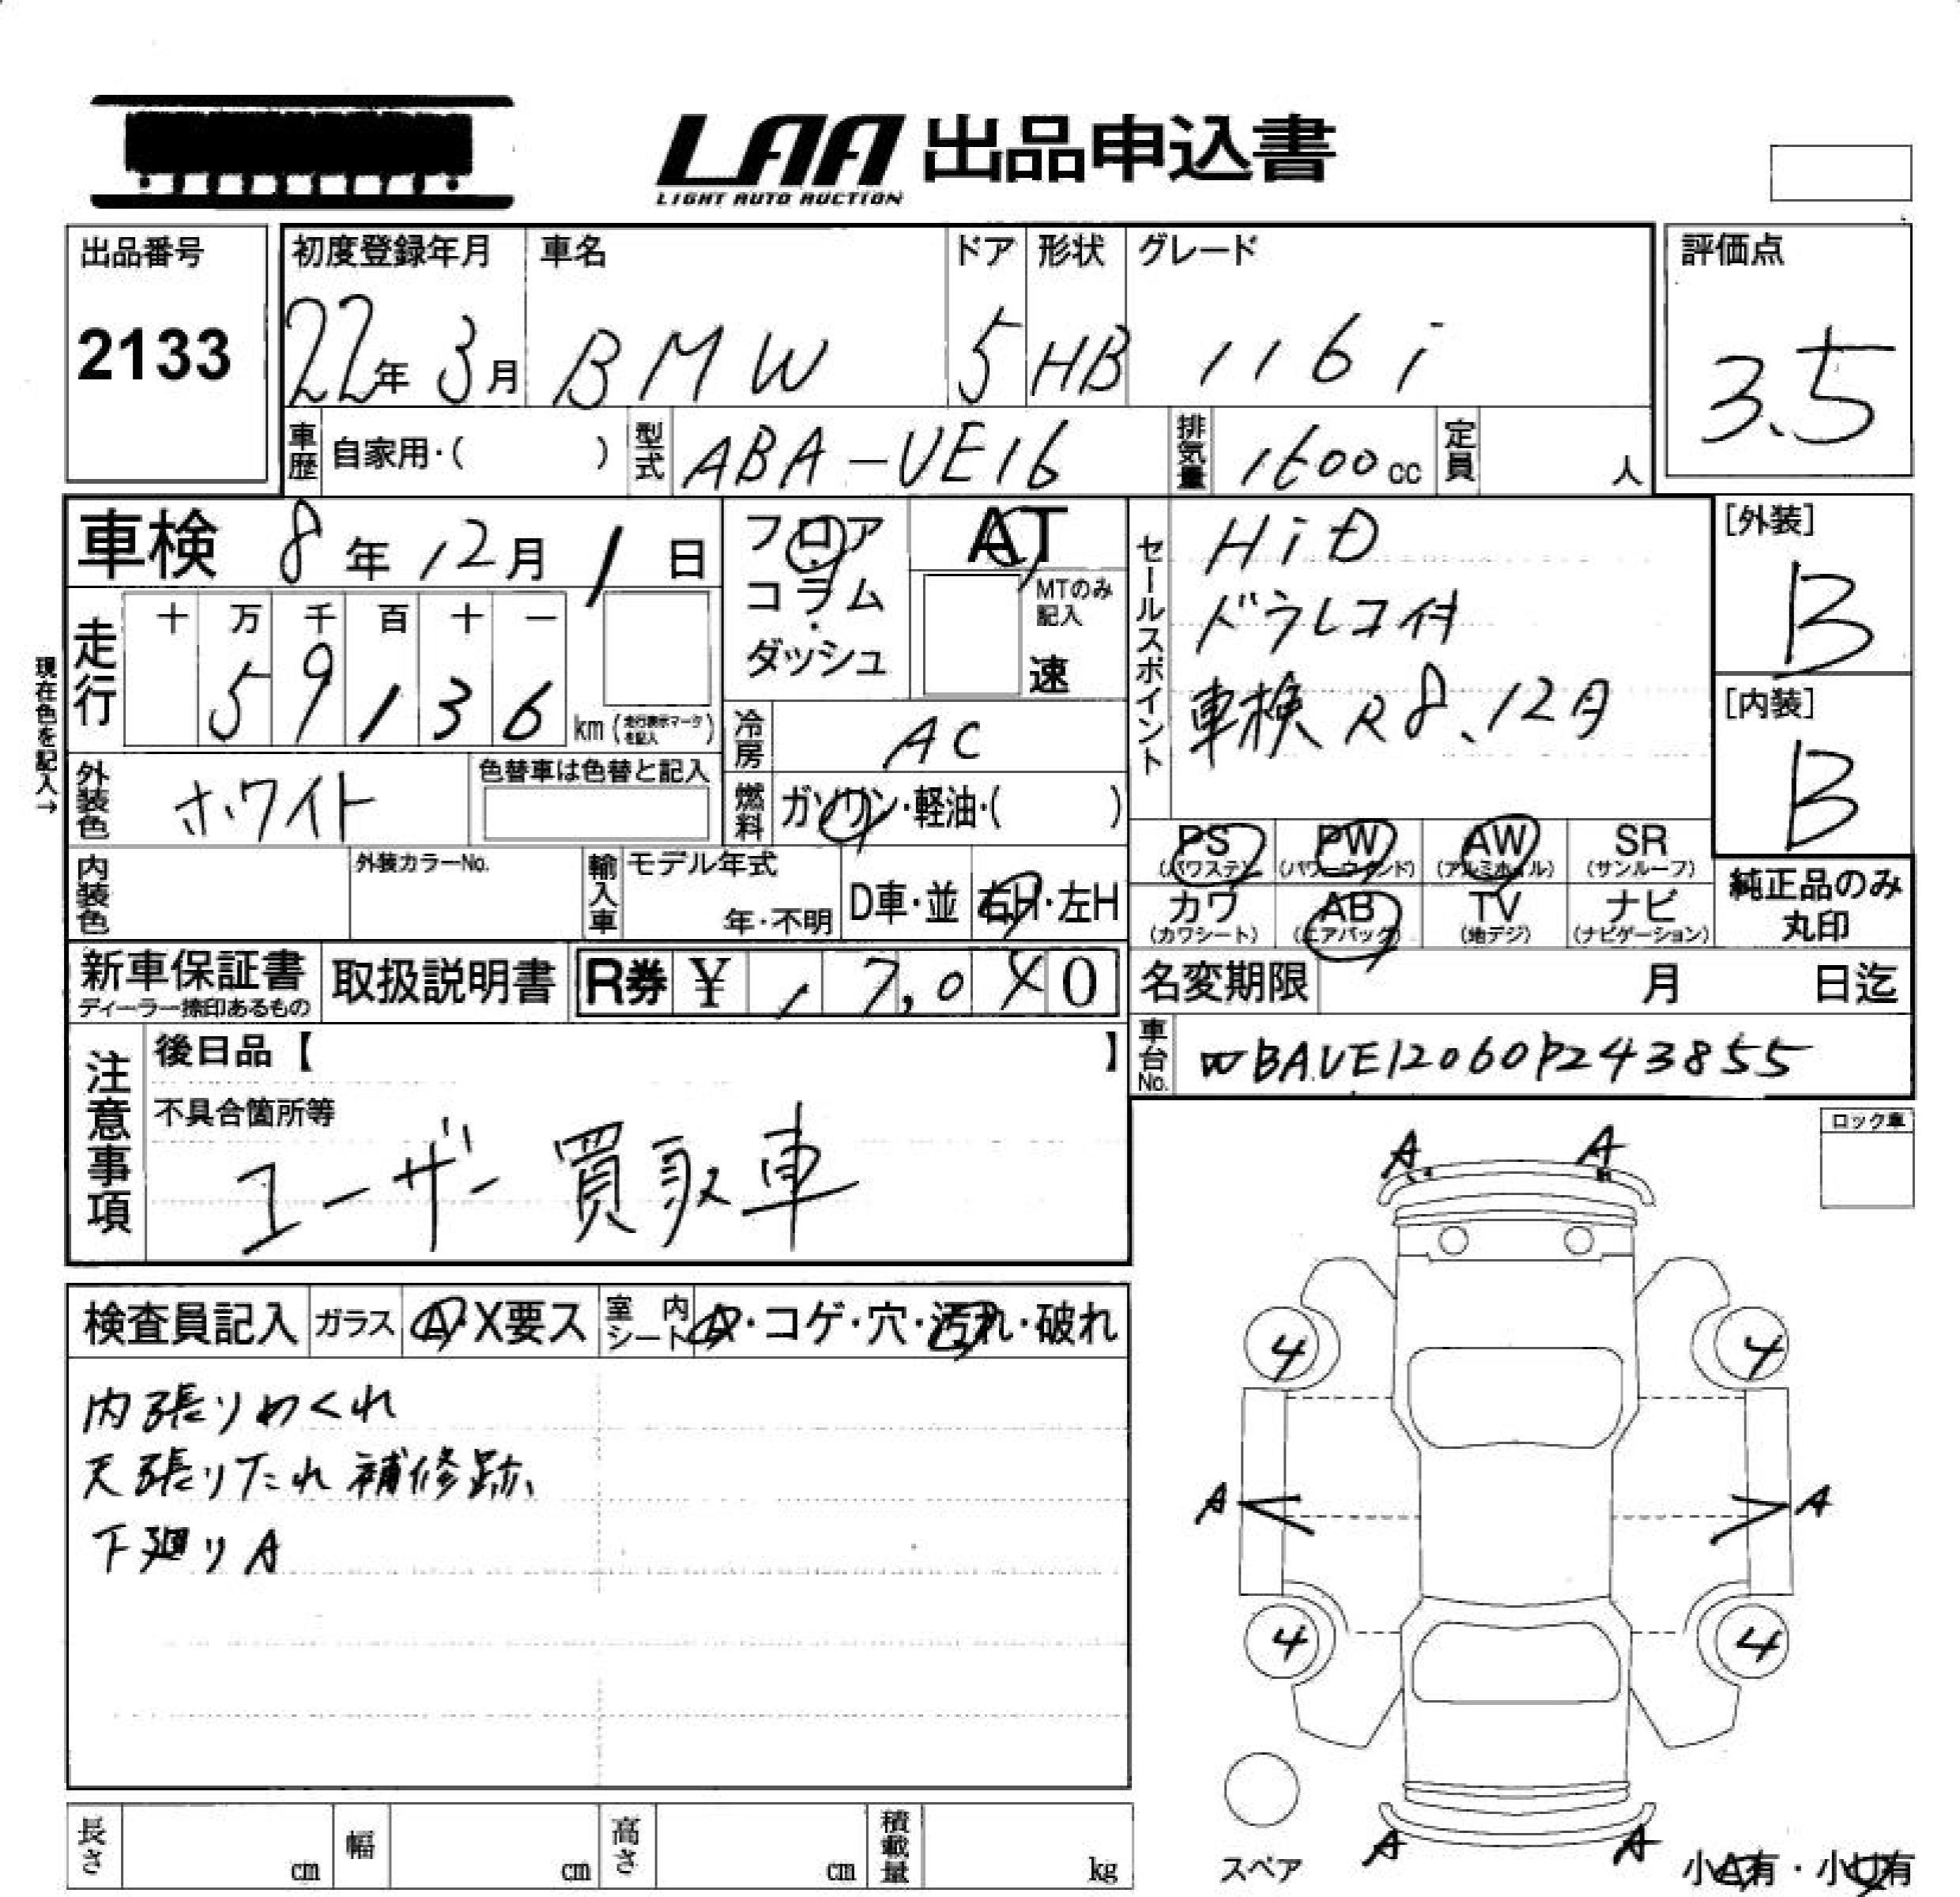 LAA 出品申込書
LIGHT AUTO AUCTION
出品番号
2133
初度登録年月
22年 3月
車名
BMW
ドア
5
形状
HB
グレード
116i
評価点
3.5
車歴 自家用・( )
型式 ABA-UE16
排気量 1600cc
定員 人
車検 8年12月1日
フロア
コラム
・
ダッシュ
AT
MTのみ
記入
速
セールスポイント
HiD
ドラレコ付
車検 R8、12月
[外装]
B
[内装]
B
現在色を記入→
走行
十 万 千 百 十 一
5 9 1 3 6 km (走行表示マークを記入)
冷房 AC
外装色 ホワイト
色替車は色替と記入
燃料 ガソリン・軽油・( )
PS (パワステ)
PW (パワーウインド)
AW (アルミホイル)
SR (サンルーフ)
カワ (カワシート)
AB (エアバック)
TV (地デジ)
ナビ (ナビゲーション)
純正品のみ
丸印
内装色
外装カラーNo.
輸入車
モデル年式
年・不明
D車・並
右H・左H
新車保証書
ディーラー捺印あるもの
取扱説明書
R券 ¥ , 7,0 0
名変期限 月 日迄
車台No. WBAVE12060P243855
注意事項
後日品【 】
不具合箇所等
ユーザー買取車
ロック車
A A
検査員記入 ガラス A・X要ス
室内シート A・コゲ・穴・汚れ・破れ
内張りめくれ
天張りたれ補修跡、
下廻りA
4 4
A A
4 4
スペア
A A
小A有・小U有
長さ cm
幅 cm
高さ cm
積載量 kg